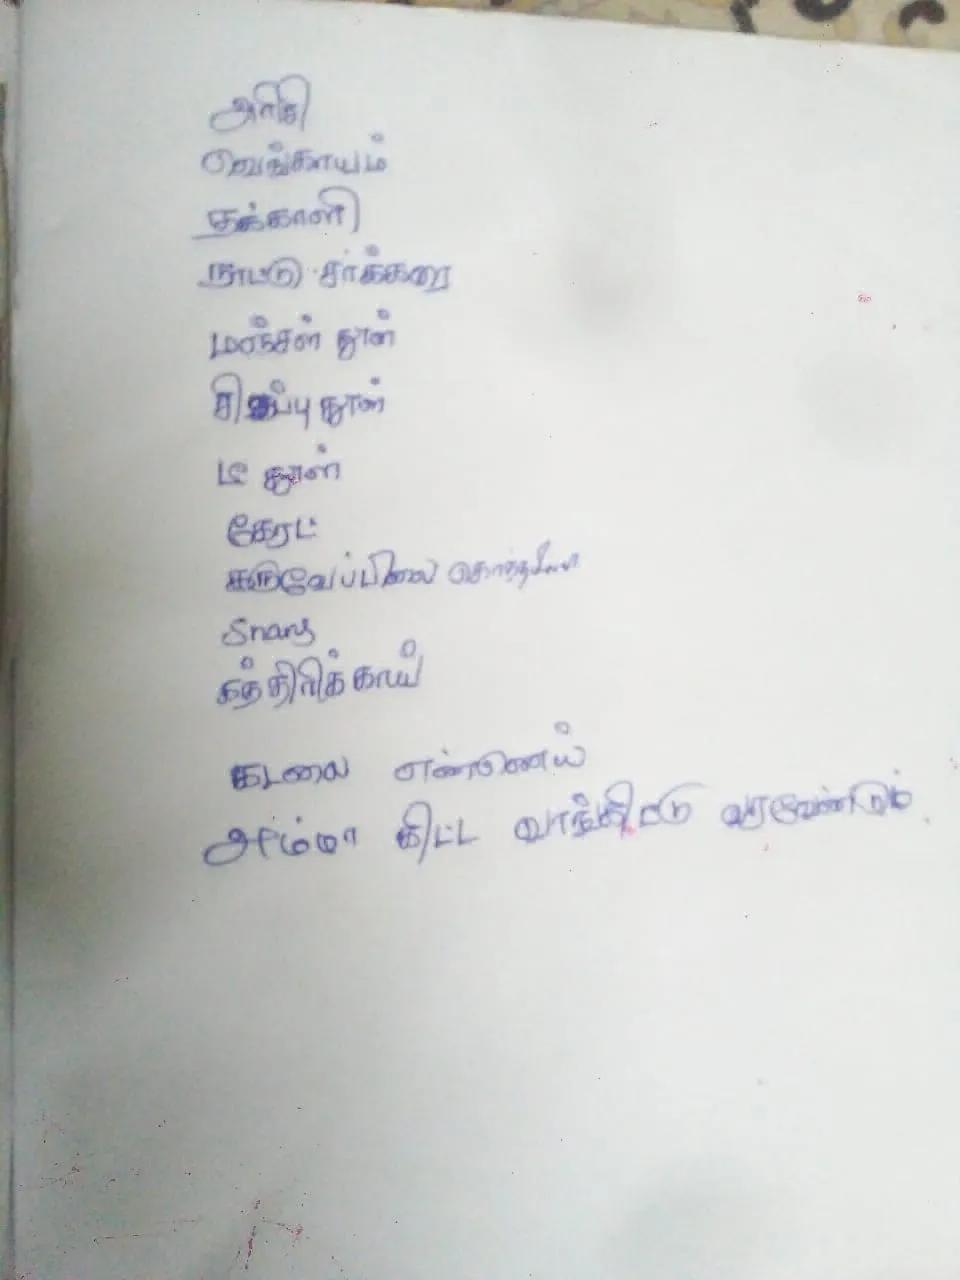 அரிசி
வெங்காயம்
தக்காளி
நாட்டு சர்க்கரை
மஞ்சள் தூள்
சிகப்பு தூள்
டீ தூள்
கேரட்
கருவேப்பிலை கொத்தமல்லி
கத்திரிக்காய்
கடலை எண்ணெய்
அம்மா கிட்ட வாங்கிட்டு வரவேண்டும்